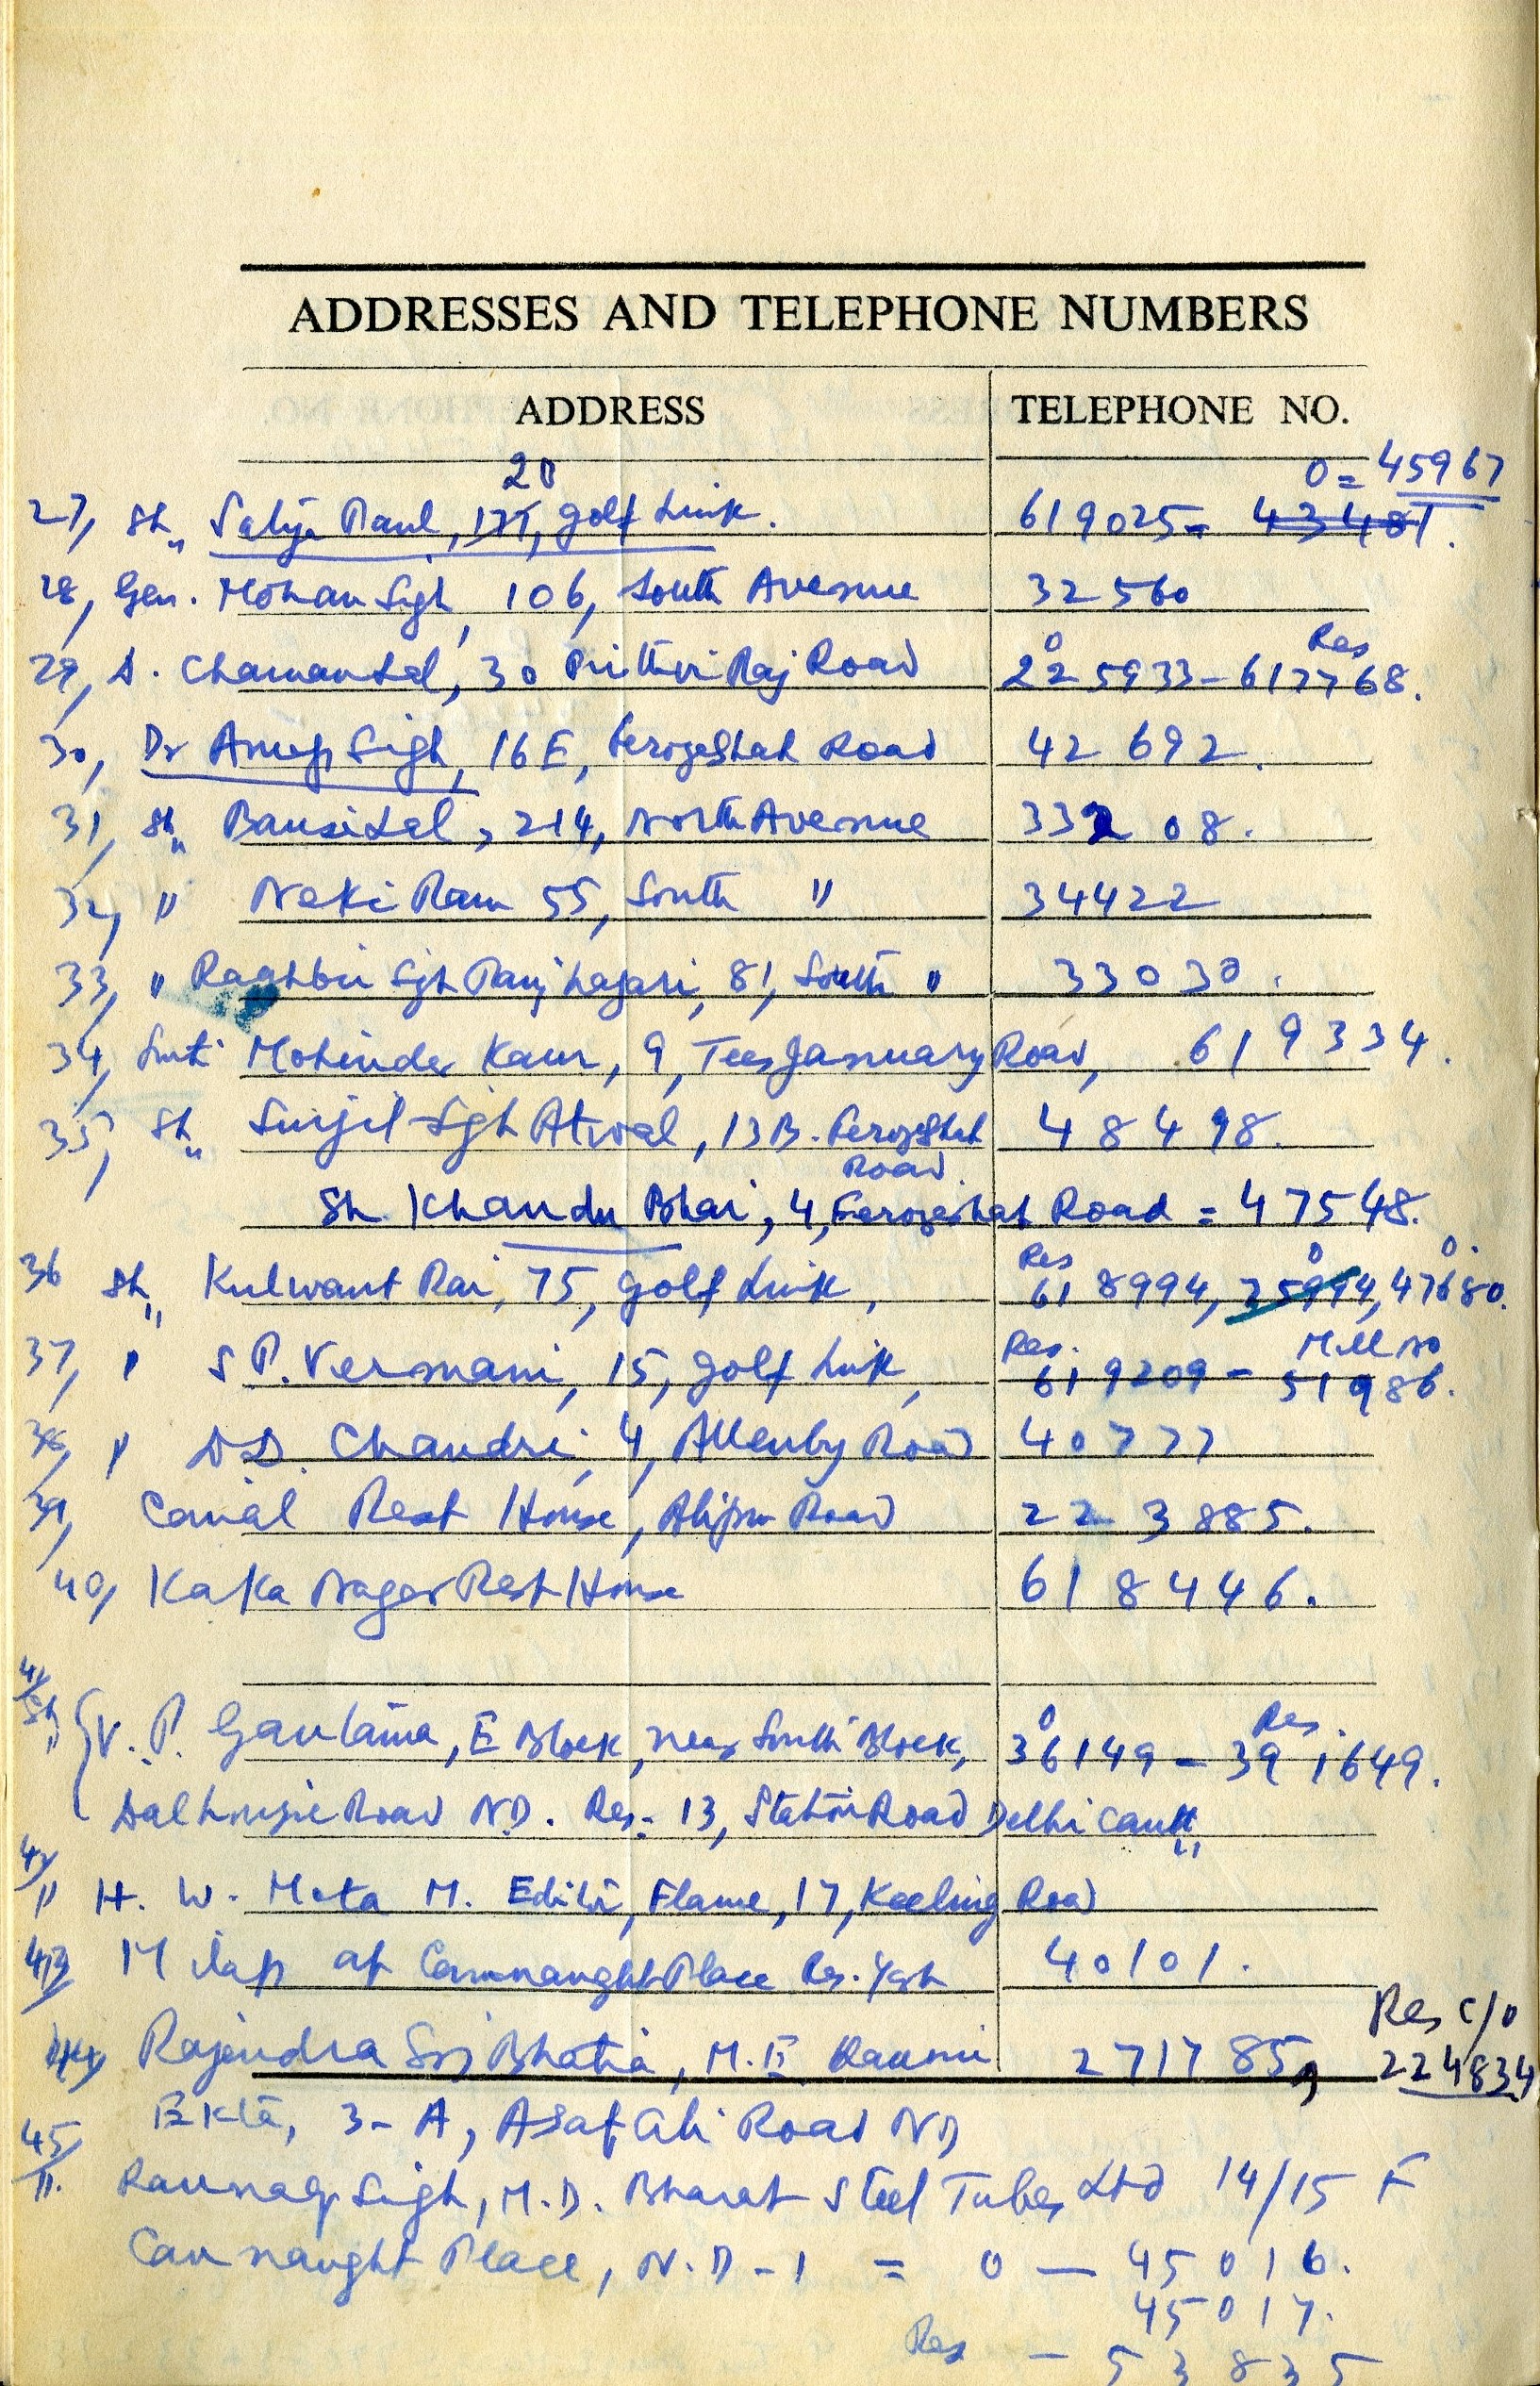 ADDRESSES AND TELEPHONE NUMBERS
ADDRESS TELEPHONE NO.
20 O = 45967
27, Sh,, Satya Paul, 177, Golf Link. 619025 = 43481.
28, Gen. Mohan Sigh, 106, South Avenue 32560
O Res
29, D. Chamanlal, 30 Prithvi Raj Road 225933 - 617768.
30, Dr Anup Sigh, 16E, Ferozeshah Road 42692.
31, Sh,, Bansilal, 214, North Avenue 33208.
32, " Neki Ram 55, South " 34422
33, " Raghbir Sgh Panjhazari, 81, South " 33030.
34, Smti Mohinder Kaur, 9, Tees January Road, 619334.
35, Sh,, Surjit Sgh Atwal, 13B. Ferozshah 48498.
Road.
Sh. Khandu Bhai, 4, Ferozeshah Road = 47548.
Res O O.
36 Sh,, Kulwant Rai, 75, Golf Link, 618994, 25994, 47680.
Res. Mill no
37, " S P. Vermani, 15, Golf Link, 619209 - 51986.
38, " D D. Chandri, 4, Allenby Road 40777
39, Canal Rest House, Alipur Road 223885.
40, Kaka Nagar Rest House 618446.
41/ Sh,,
O Res.
V. P. Gautama, E Block, near South Block, 36149 - 391649.
Dalhousie Road N.D. Res: 13, Station Road Delhi Cantt,,
42/
" H. W. Mota M. Editor, Flame, 17, Keeling Road
43/ Milap at Connaught Place Res. Yash 40101.
Res C/O
44/ Rajendra Sgj Bhatia, M.E Kaumi 271785, 224834
Ekta, 3-A, Asaf Ali Road ND
45/
". Raunaq Sigh, M.D. Bharat Steel Tubes Ltd 14/15 F
Connaught Place, N.D-1 = O — 45016.
45017.
Res — 53835